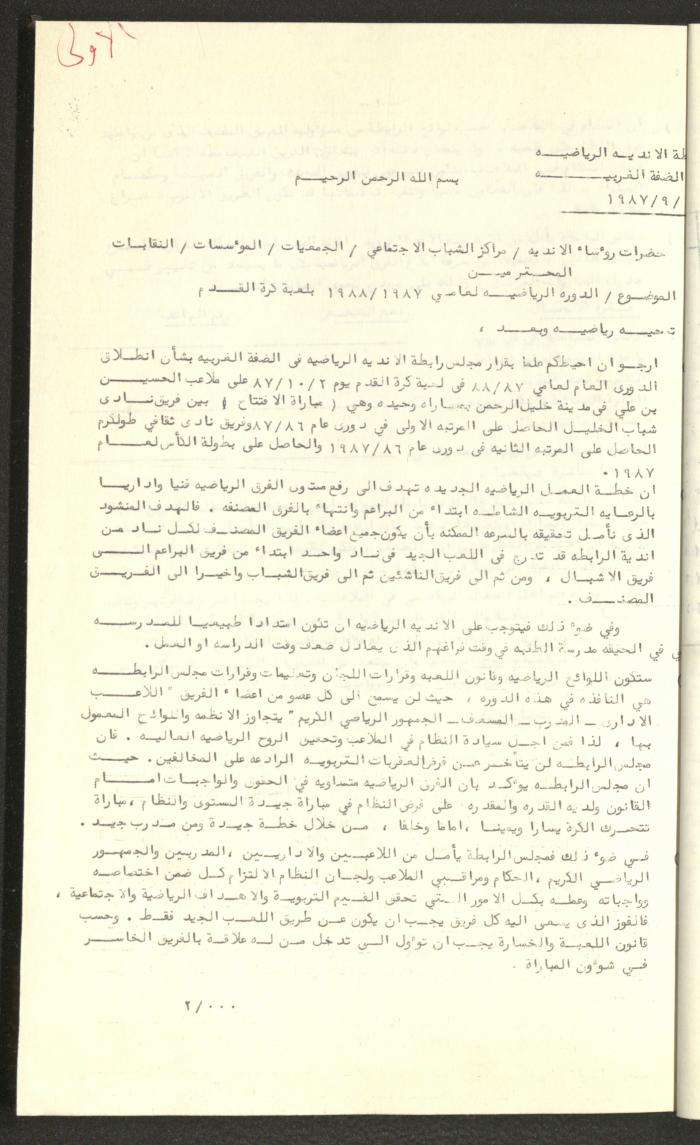 الاولى
طة الانديه الرياضيـــه
الضفة الغربيــــــه
بسم الله الرحمن الرحيـــم
/ ١٩٨٧/٩
حضرات روؤساء الانديه / مراكز الشباب الاجتماعي / الجمعيات / الموؤسسات / النقابات
المحتـرميــن
الموضوع / الدوره الرياضيــه لعامي ١٩٨٨/١٩٨٧ بلعبة كرة القـدم
تحيـه رياضيـه وبعـد ،
ارجـو ان احيطكم علما بقرار مجلس رابطة الانديه الرياضيه في الضفة الغربيه بشأن انطـلاق
الدورى العـام لعامي ٨٨/٨٧ في لعبة كرة القدم يوم ٨٧/١٠/٢ على ملاعب الحسيــن
بن علي في مدينة خليل الرحمن بمباراه وحيده وهي ( مباراة الافتتاح ) بين فريق نـادى
شباب الخليـل الحاصل على المرتبه الاولى في دورى عام ٨٧/٨٦ وفريق نادى ثقافي طولكرم
الحاصل على المرتبه الثانيه في دورى عام ١٩٨٧/٨٦ والحاصل على بطولة الكأس لعــام
١٩٨٧ ٠
ان خطـة العمـل الرياضيه الجديده تهدف الى رفع مستوى الفرق الرياضيه فنيا واداريـا
بالرعايه التربويـه الشاملـه ابتداء من البراعم وانتهاء بالفرق المصنفه . فالهدف المنشود
الذى نأمـل تحقيقه بالسرعه الممكنه بأن يكون جميع اعضاء الفريق المصنـف لكـل نـاد مـن
اندية الرابطه قد تدرج في اللعب الجيد في نـاد واحـد ابتداء من فريق البراعم الــى
فريق الاشبـال ، ومن ثم الى فريق الناشئين ثم الى فريق الشبـاب واخيـرا الى الفريــق
المصنــف .
وفي ضوء ذلك فيتوجب على الانديه الرياضيه ان تكون امتدادا طبيعيـا للمدرســه
ي في الحقيقه مدرسة الطلبه في وقت فراغهم الذى يعادل ضعف وقت الدراسه او العمل .
ستكون اللوائح الرياضيه وقانون اللعبه وقرارات اللجان وتعليمات وقرارات مجلس الرابطـــه
هي النافذه في هذه الدوره ، حيث لن يسمح الى كل عضو من اعضاء الفريق " اللاعــب
الادارى ــ المدرب ــ المسعف ــ الجمهور الرياضي الكريم " يتجاوز الانظمه واللوائح المعمول
بها ، لذا فمن اجـل سيادة النظام في الملاعب وتحقيق الروح الرياضيه العاليـه . فان
مجلس الرابطـه لن يتأخـر عـن فرض العقوبات التربويـه الرادعه على المخالفين . حيـث
ان مجلس الرابطــه يوؤكـد بان الفرق الرياضيه متساويه في الحقوق والواجبـات امــام
القانون ولديه القدره والمقدره على فرض النظام في مباراة جيـدة المستوى والنظام ، مباراة
تتحـرك الكرة يسارا ويمينـا ، اماما وخلفا ، مـن خلال خطـة جيـدة ومن مـدرب جيـد .
فــي ضوء ذلك فمجلس الرابطة يأمـل من اللاعبـين والاداريـين ، المدربـين والجمهـور
الرياضـي الكريم ، الحكام ومراقبـي الملاعب ولجـان النظام الالتزام كـل ضمن اختصاصـه
وواجباته وعملـه بكـل الامور التـي تحقق القـيم التربويـة والاهـداف الرياضية والاجتماعية ،
فالفوز الذى يسعى اليه كل فريق يجب ان يكون عـن طريق اللعب الجيد فقـط . وحسب
قانون اللعبـة والخسارة يجـب ان توؤول الـى تدخـل مـن لـه علاقـة بالفريق الخاسـر
فـي شوؤون المباراة .
٢/٠٠٠